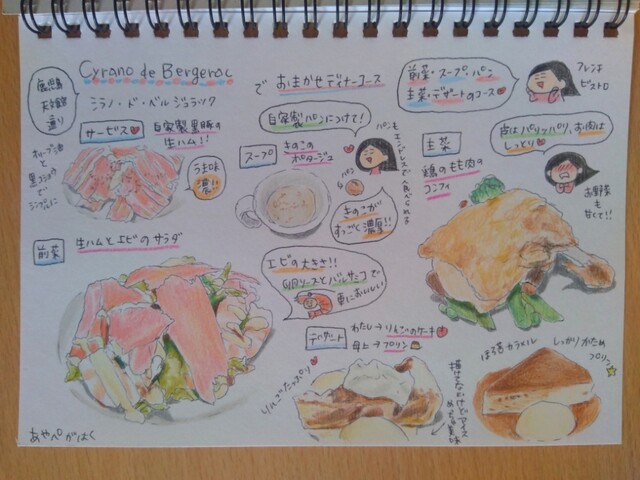 Cyrano de Bergerac
シラノ・ド・ベルジュラック
鹿児島
天文館
通り
で おまかせディナーコース
前菜・スープ・パン
主菜・デザートのコース
フレンチ
ビストロ
サービス
自家製黒豚の
生ハム!!
オリーブ油と
黒コショウ
で
シンプルに
うま味
濃!!
前菜
生ハムとエビのサラダ
エビの大きさ!!
白ソースとバルサミコで
更においしい
自家製パンにつけて!
スープ
きのこの
ポタージュ
パンも
エンドレスで
食べられる
きのこが
すっごく濃厚!!
主菜
鶏のもも肉の
コンフィ
皮はパリッパリ、お肉は
しっとり
お野菜
も
甘くて!!
デザート
わたし→りんごのケーキ
母上→プリン
りんごたっぷり
横はさないけどアイス
めっちゃ美味
ほろ苦カラメル
しっかりかため
プリン
あやぺがはく